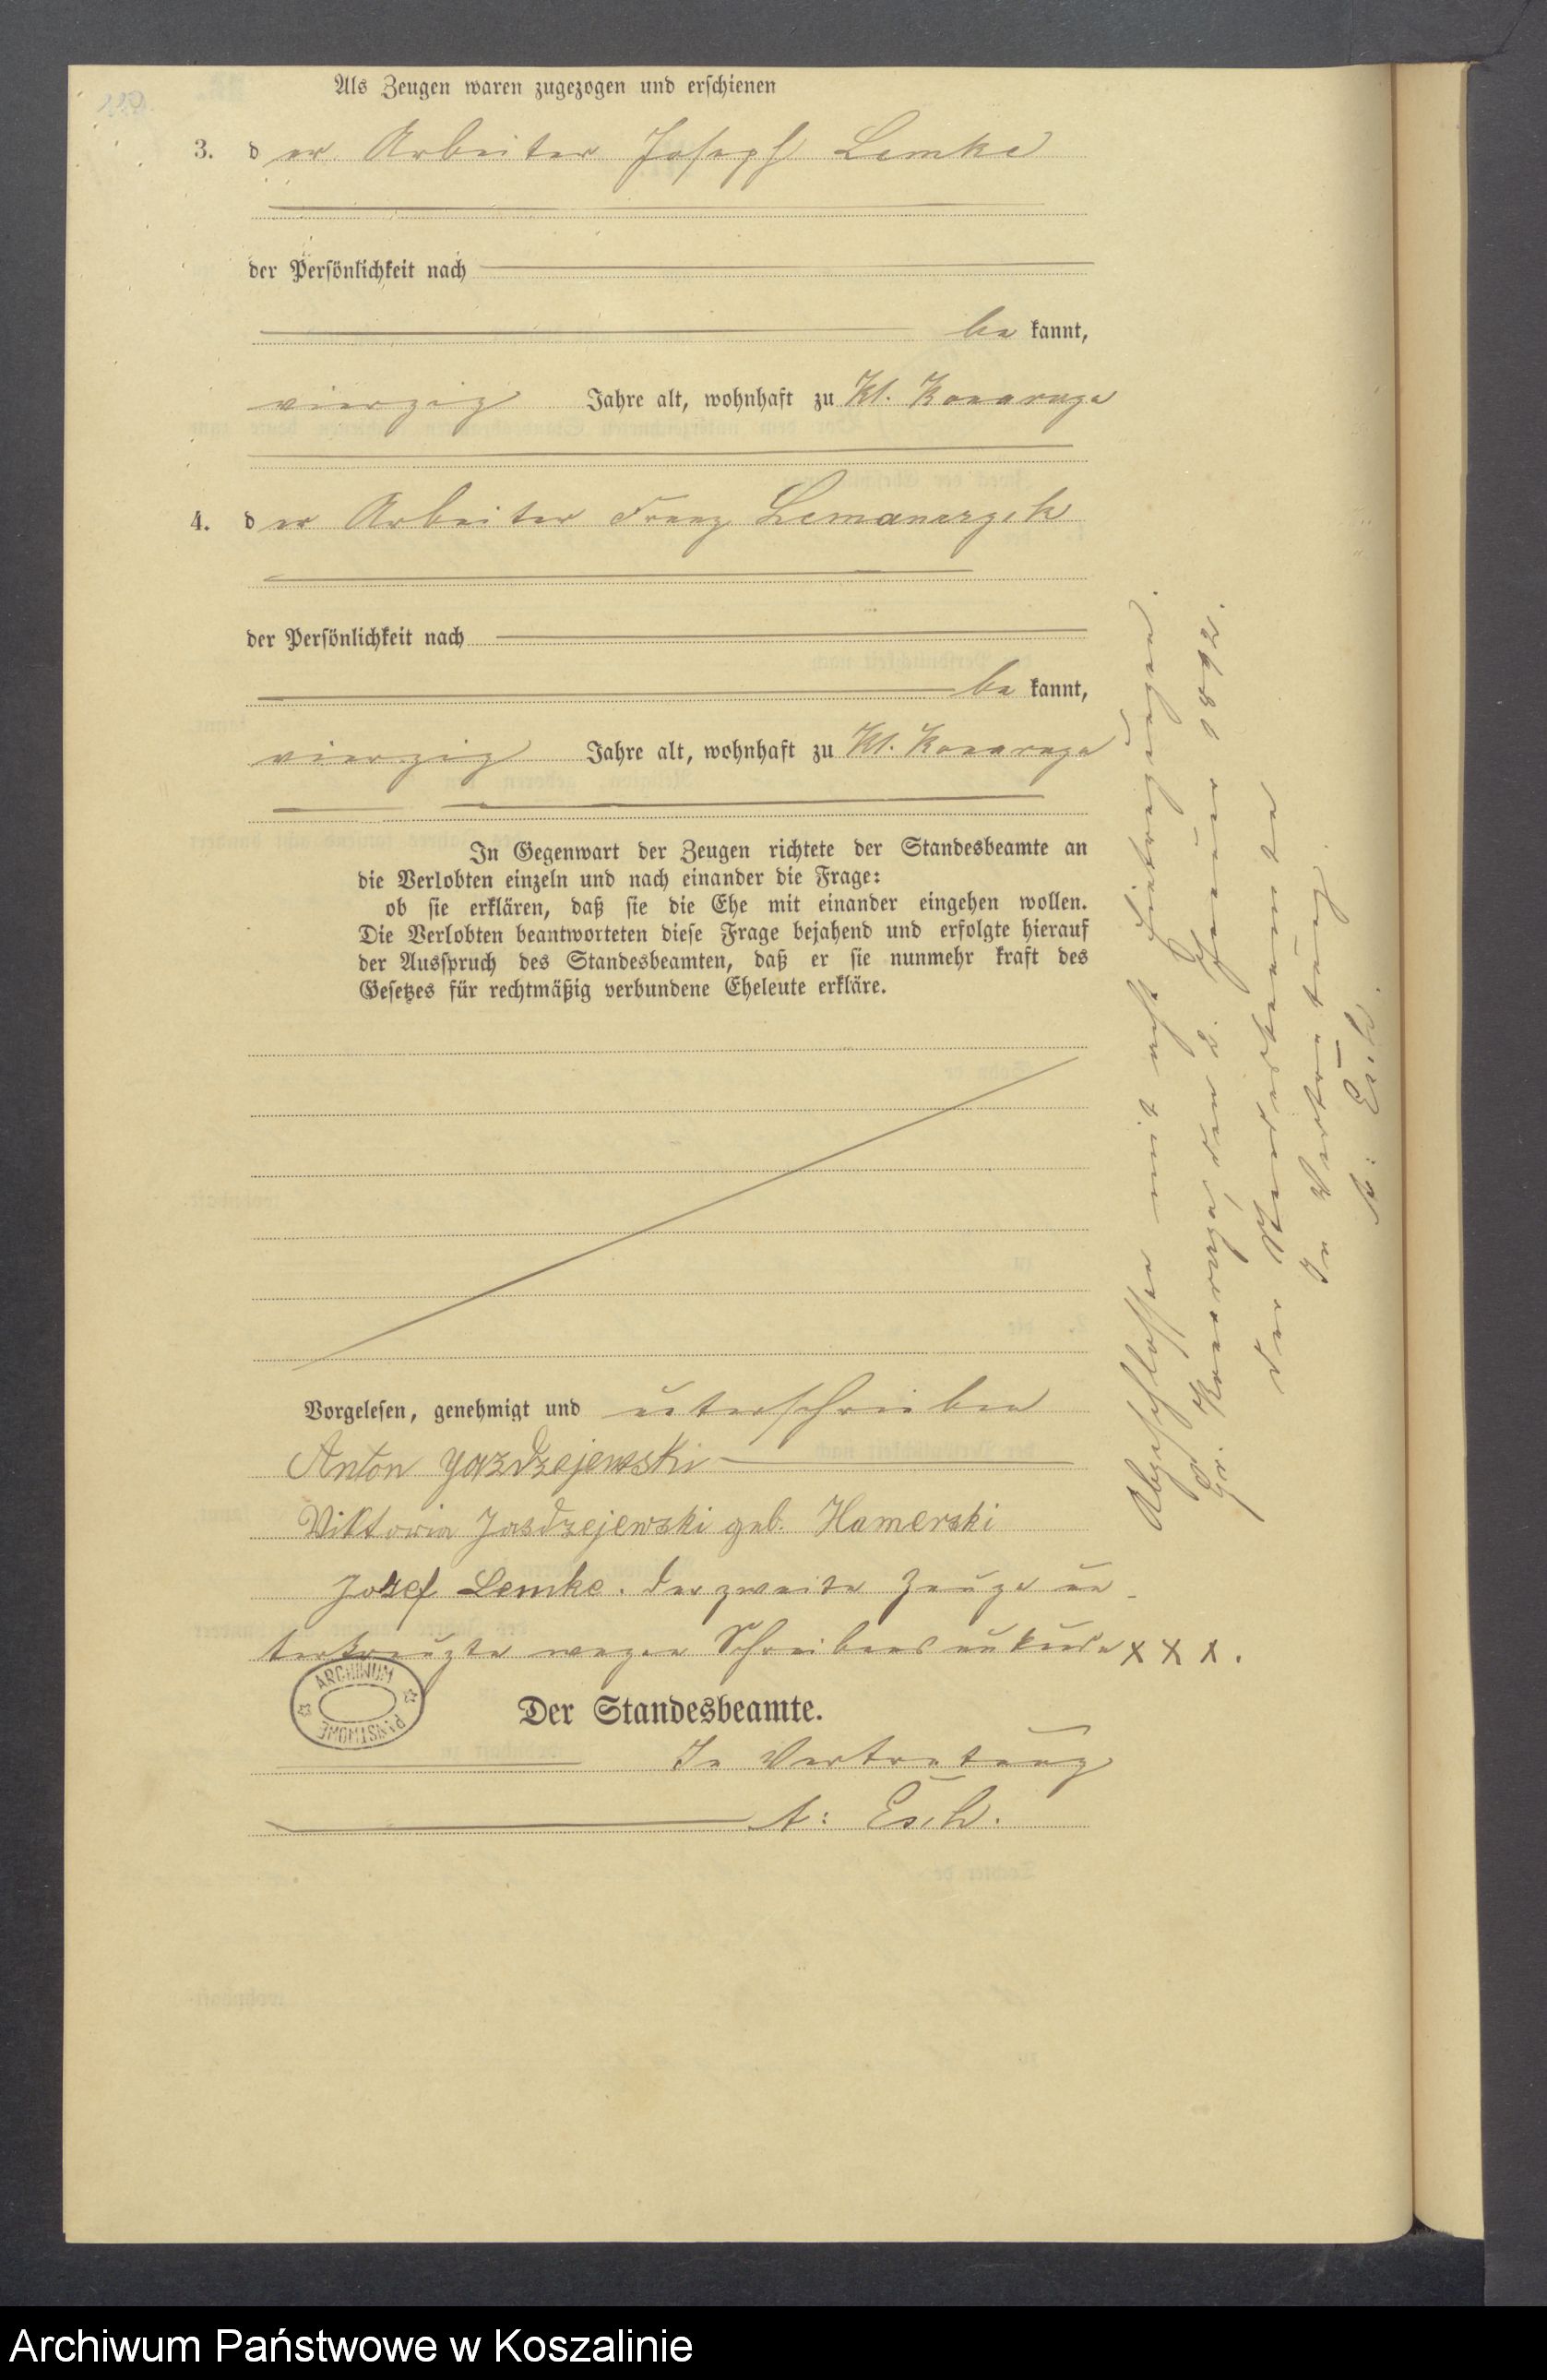 Als Zeugen waren zugezogen und erschienen
3. der Arbeiter Joseph Lemke
der Persönlichkeit nach
be kannt,
vierzig Jahre alt, wohnhaft zu Kl. Konarzyn
4. der Arbeiter Franz Lemanczyk
der Persönlichkeit nach
be kannt,
vierzig Jahre alt, wohnhaft zu Kl. Konarzyn
In Gegenwart der Zeugen richtete der Standesbeamte an
die Verlobten einzeln und nach einander die Frage:
ob sie erklären, daß sie die Ehe mit einander eingehen wollen.
Die Verlobten beantworteten diese Frage bejahend und erfolgte hierauf
der Ausspruch des Standesbeamten, daß er sie nunmehr kraft des
Gesetzes für rechtmäßig verbundene Eheleute erkläre.
Vorgelesen, genehmigt und unterschrieben
Anton Jazdzejewski
Viktoria Jasdzejewski geb. Hamerski
Josef Lemke. der zweite Zeuge un-
terkreuzte wegen Schreibensunkunde x x x.
ARCHIWUM PAŃSTWOWE
Der Standesbeamte.
In Vertretung
A: Esch.
Abgeschlossen mit acht Eintragungen.
Gr. Konarzyn, den 2. Januar 1892.
der Standesbeamte
In Vertretung.
A: Esch.
Archiwum Państwowe w Koszalinie